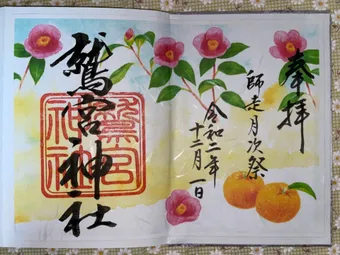 奉拝
師走月次祭
令和二年
十二月一日
鷲宮神社
鷲宮神社